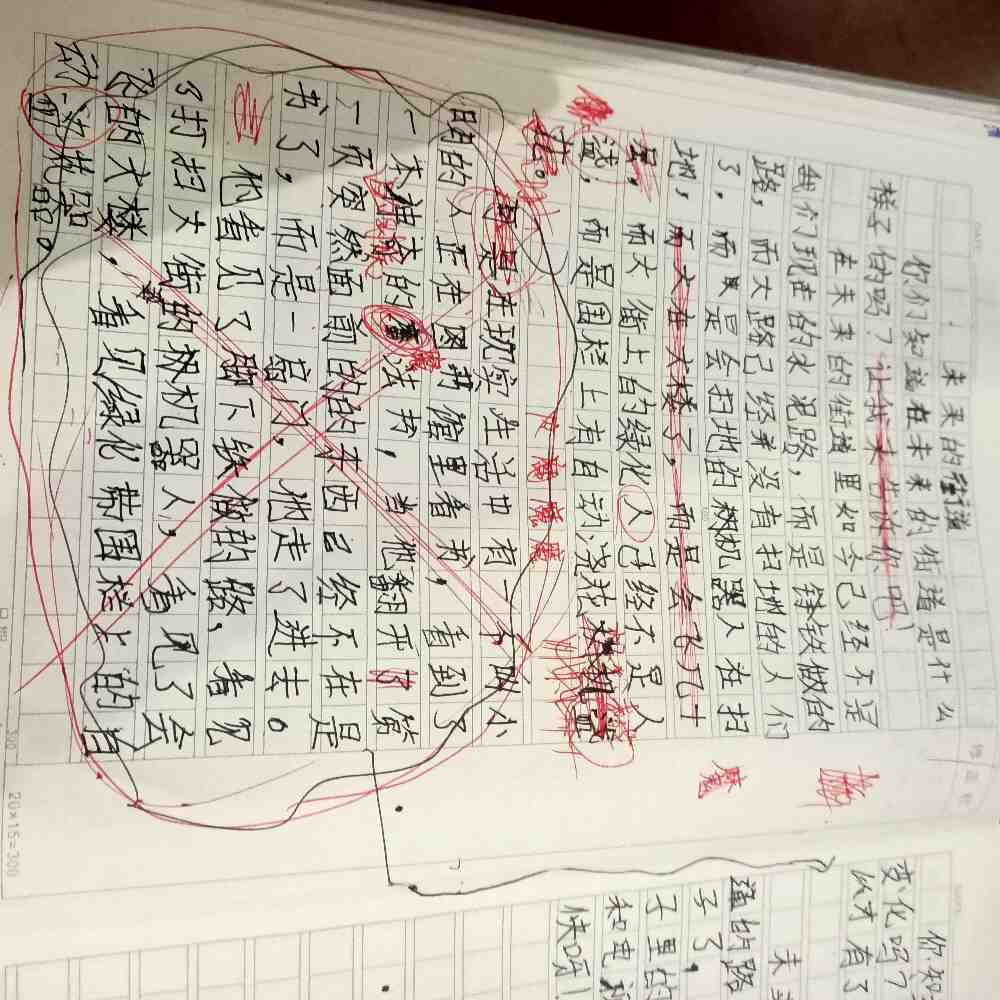 未来的街道
你们知道在未来的街道是什么
样子的吗？让我来告诉你吧！
在未来的街道里如今已经不是
我们现在的水泥路，而是锋铁做的
路，而大路已经并没有扫地的人们
了，而只是会扫地的机器人在扫
地，而大在大楼了，而是会飞几十
层，而大街上的绿化人已经不是人
浇，而是围栏上有自动浇花机器
花。
可是在现实生活中有一个小
明的人正在图书馆里看书，看到了
一本神奇的魔法书，当他翻开了第
一页突然面前的的东西已经不在是
书了，而是一扇门，他走了进去。
他看见了脚下铁做的路，看见
了打扫大街的机器人，看见了会
飞的大楼，看见绿化带围栏上的自
动浇花器。
魔魔魔
魔
你知
变化吗？
以才有了
未
道的路
子了，
子里的
和电
快呀！
20×15=300